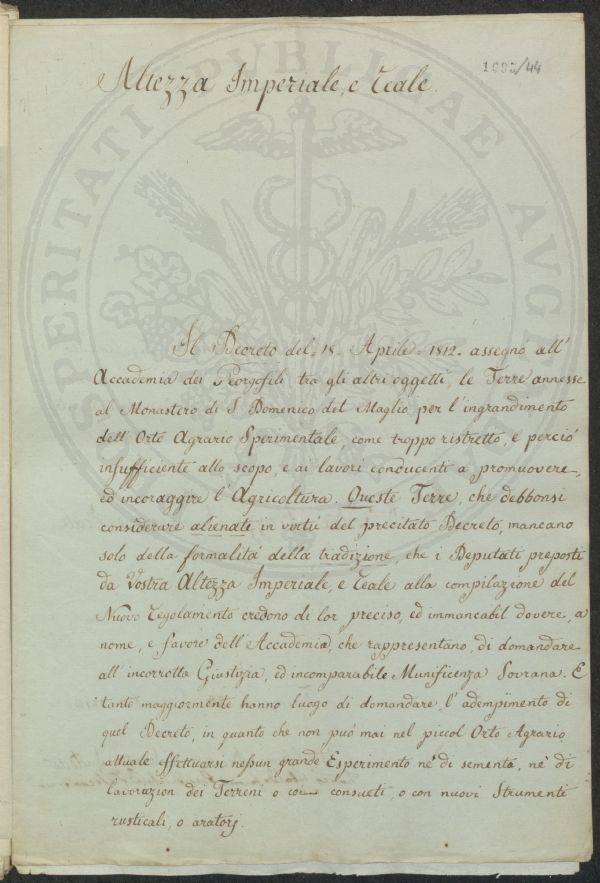 1083/44
Altezza Imperiale, e Reale.
Il Decreto del 18. Aprile 1812. assegnò all'
Accademia dei Georgofili, tra gli altri oggetti, le Terre annesse
al Monastero di S. Domenico del Maglio, per l'ingrandimento
dell'Orto Agrario Sperimentale come troppo ristretto, e perciò
insufficiente allo scopo, e ai lavori conducenti a promuovere,
ed incoraggire l'Agricoltura. Queste Terre, che debbonsi
considerare alienate in virtù del precitato Decreto, mancano
solo della formalità della tradizione, che i Deputati preposti
da Vostra Altezza Imperiale, e Reale alla compilazione del
Nuovo Regolamento credono di lor preciso, ed immancabil dovere, a
nome, e favore dell'Accademia, che rappresentano, di domandare
all'incorrotta Giustizia, ed incomparabile Munificenza Sovrana. E
tanto maggiormente hanno luogo di domandare l'adempimento di
quel Decreto, in quanto che non può mai nel piccol Orto Agrario
attuale effettuarsi nessun grande Esperimento nè di sementa, nè di
lavorazion dei Terreni o coi consueti, o con nuovi Strumenti
rusticali, o aratorj.
PROSPERITATI PUBLICAE AUGENDAE